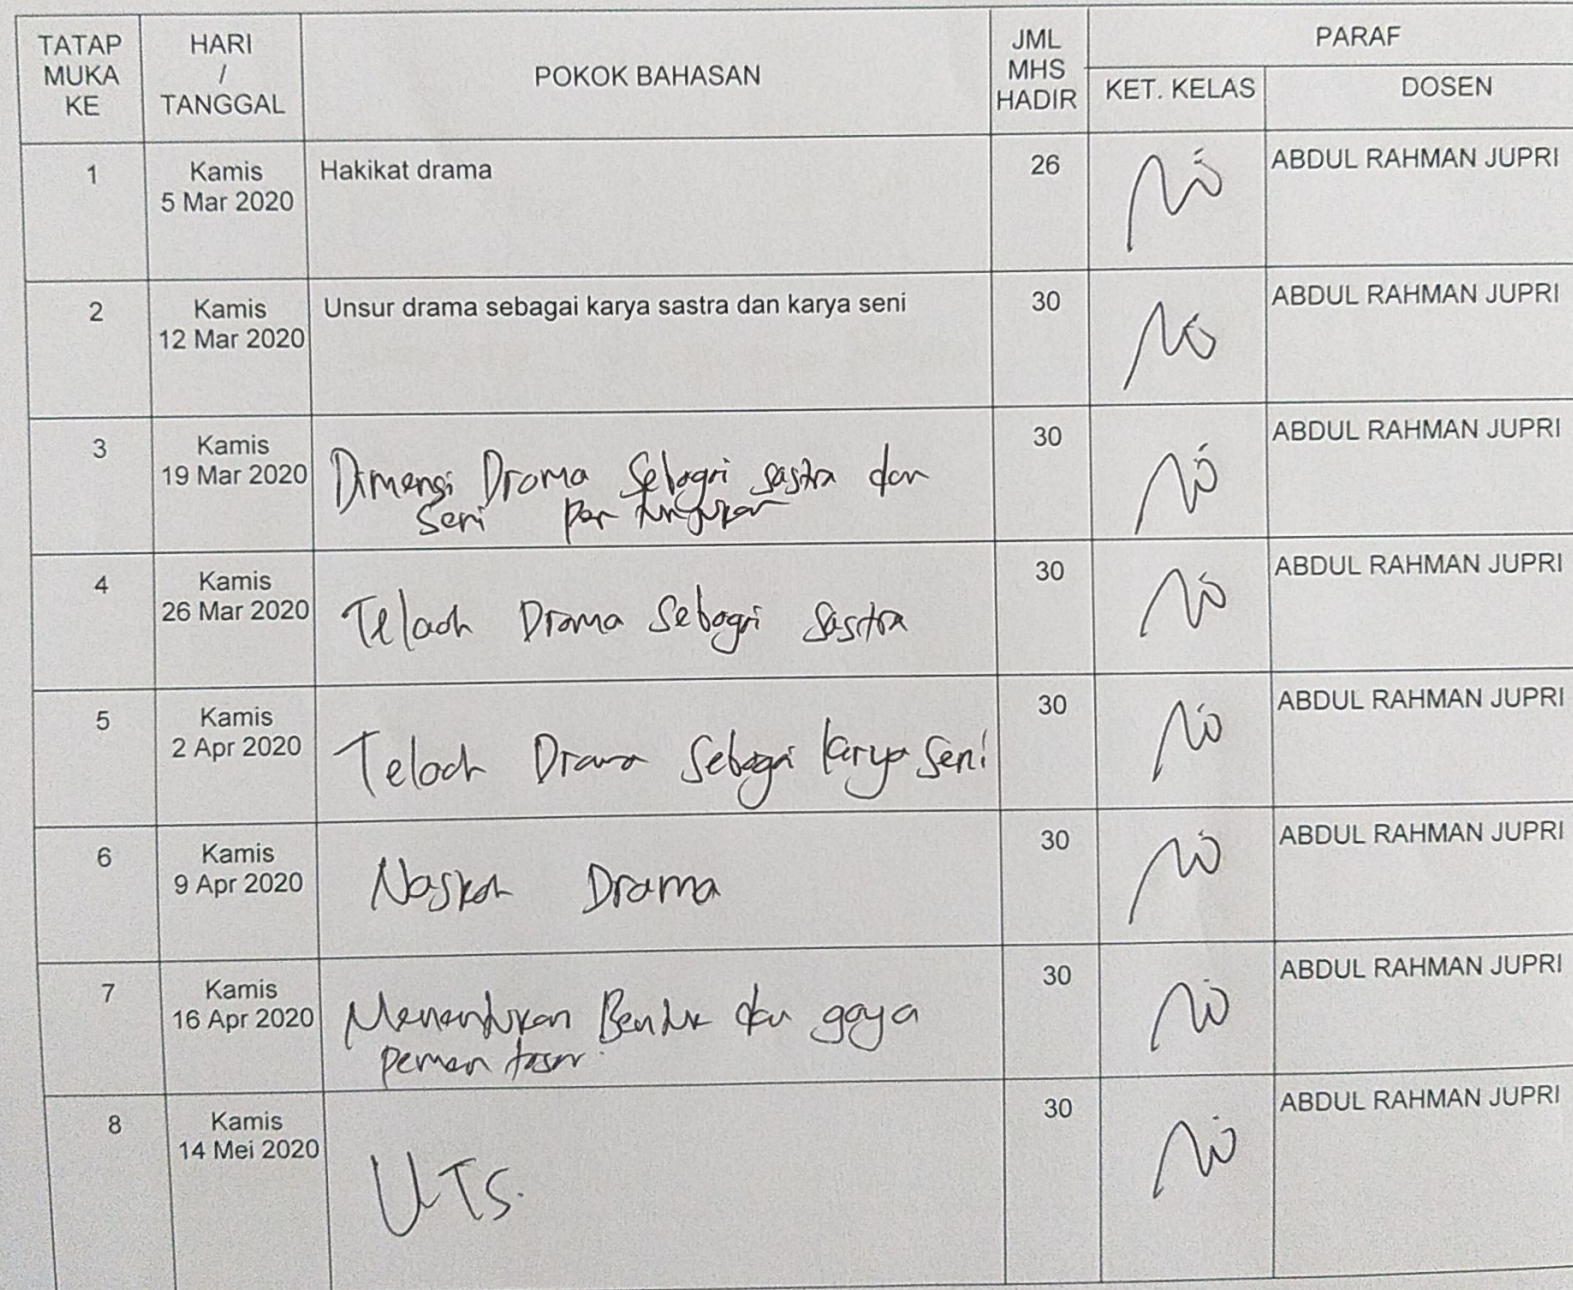 TATAP MUKA KE
HARI / TANGGAL
POKOK BAHASAN
JML MHS HADIR
PARAF
KET. KELAS
DOSEN
1
Kamis
5 Mar 2020
Hakikat drama
26
ABDUL RAHMAN JUPRI
2
Kamis
12 Mar 2020
Unsur drama sebagai karya sastra dan karya seni
30
ABDUL RAHMAN JUPRI
3
Kamis
19 Mar 2020
Dimensi Drama Sebagai sastra dan
Seni pertunjukan
30
ABDUL RAHMAN JUPRI
4
Kamis
26 Mar 2020
Telaah Drama Sebagai Sastra
30
ABDUL RAHMAN JUPRI
5
Kamis
2 Apr 2020
Telaah Drama Sebagai karya Seni
30
ABDUL RAHMAN JUPRI
6
Kamis
9 Apr 2020
Naskah Drama
30
ABDUL RAHMAN JUPRI
7
Kamis
16 Apr 2020
Menentukan Bentuk dan gaya
pementasan.
30
ABDUL RAHMAN JUPRI
8
Kamis
14 Mei 2020
UTS.
30
ABDUL RAHMAN JUPRI